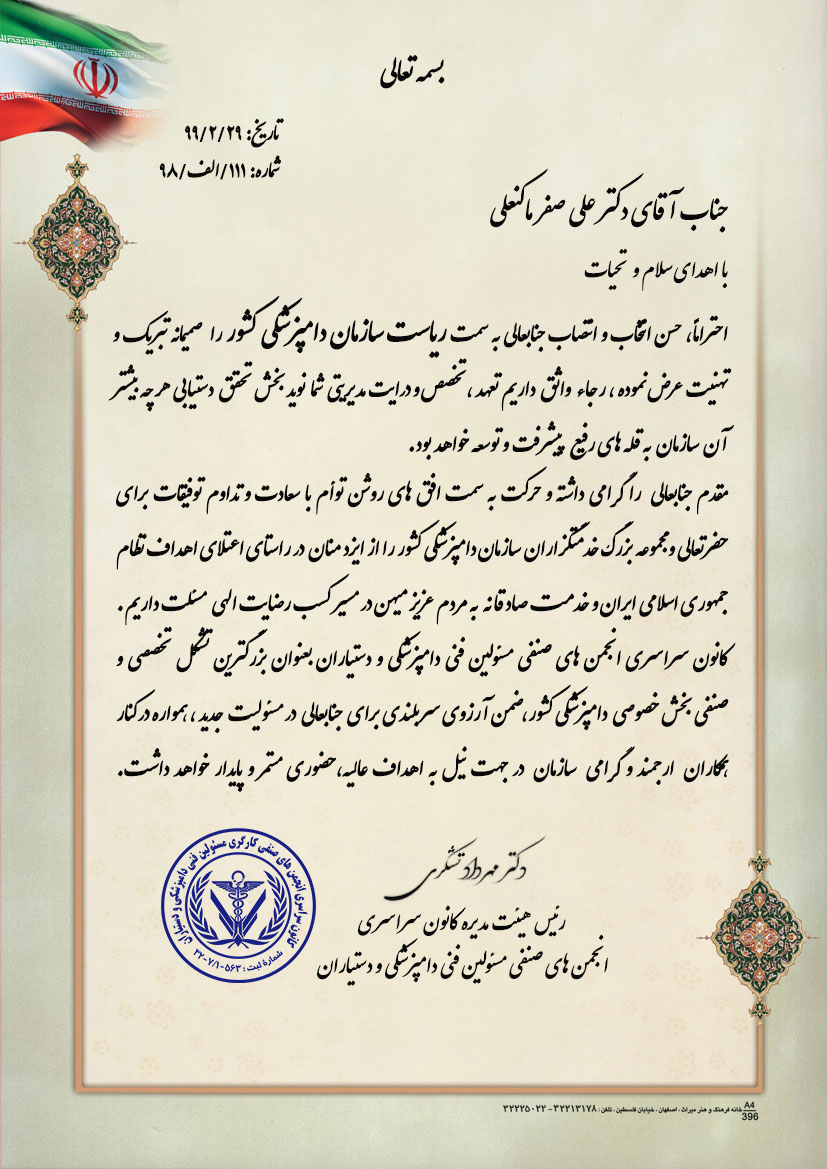 بسمه تعالی
تاریخ: ۹۹/۲/۲۹
شماره: ۱۱۱/الف/۹۸
جناب آقای دکتر علی صفر ماکنعلی
با اهدای سلام و تحیات
احتراماً، حسن انتخاب و انتصاب جنابعالی به سمت ریاست سازمان دامپزشکی کشور را صمیمانه تبریک و
تهنیت عرض نموده ، رجاء واثق داریم تعهد ، تخصص و درایت مدیریتی شما نوید بخش تحقق دستیابی هر چه بیشتر
آن سازمان به قله های رفیع پیشرفت و توسعه خواهد بود.
مقدم جنابعالی را گرامی داشته و حرکت به سمت افق های روشن توأم با سعادت و تداوم توفیقات برای
حضرتعالی و مجموعه بزرگ خدمتگزاران سازمان دامپزشکی کشور را از ایزد منان در راستای اعتلای اهداف نظام
جمهوری اسلامی ایران و خدمت صادقانه به مردم عزیز میهن در مسیر کسب رضایت الهی مسئلت داریم .
کانون سراسری انجمن های صنفی مسئولین فنی دامپزشکی و دستیاران بعنوان بزرگترین تشکل تخصصی و
صنفی بخش خصوصی دامپزشکی کشور،ضمن آرزوی سربلندی برای جنابعالی در مسئولیت جدید ، همواره در کنار
همکاران ارجمند و گرامی سازمان در جهت نیل به اهداف عالیه،حضوری مستمر و پایدار خواهد داشت.
دکتر مهرداد تشکری
رئیس هیئت مدیره کانون سراسری
انجمن های صنفی مسئولین فنی دامپزشکی و دستیاران
کانون سراسری انجمن های صنفی کارگری مسئولین فنی دامپزشکی و دستیاران
شماره ثبت : ۵۶۳-۲۲-۷/۱
A4
396
خانه فرهنگ و هنر میراث ، اصفهان ، خیابان فلسطین ، تلفن : ۳۲۲۱۳۱۷۸ - ۳۲۲۲۵۰۲۲